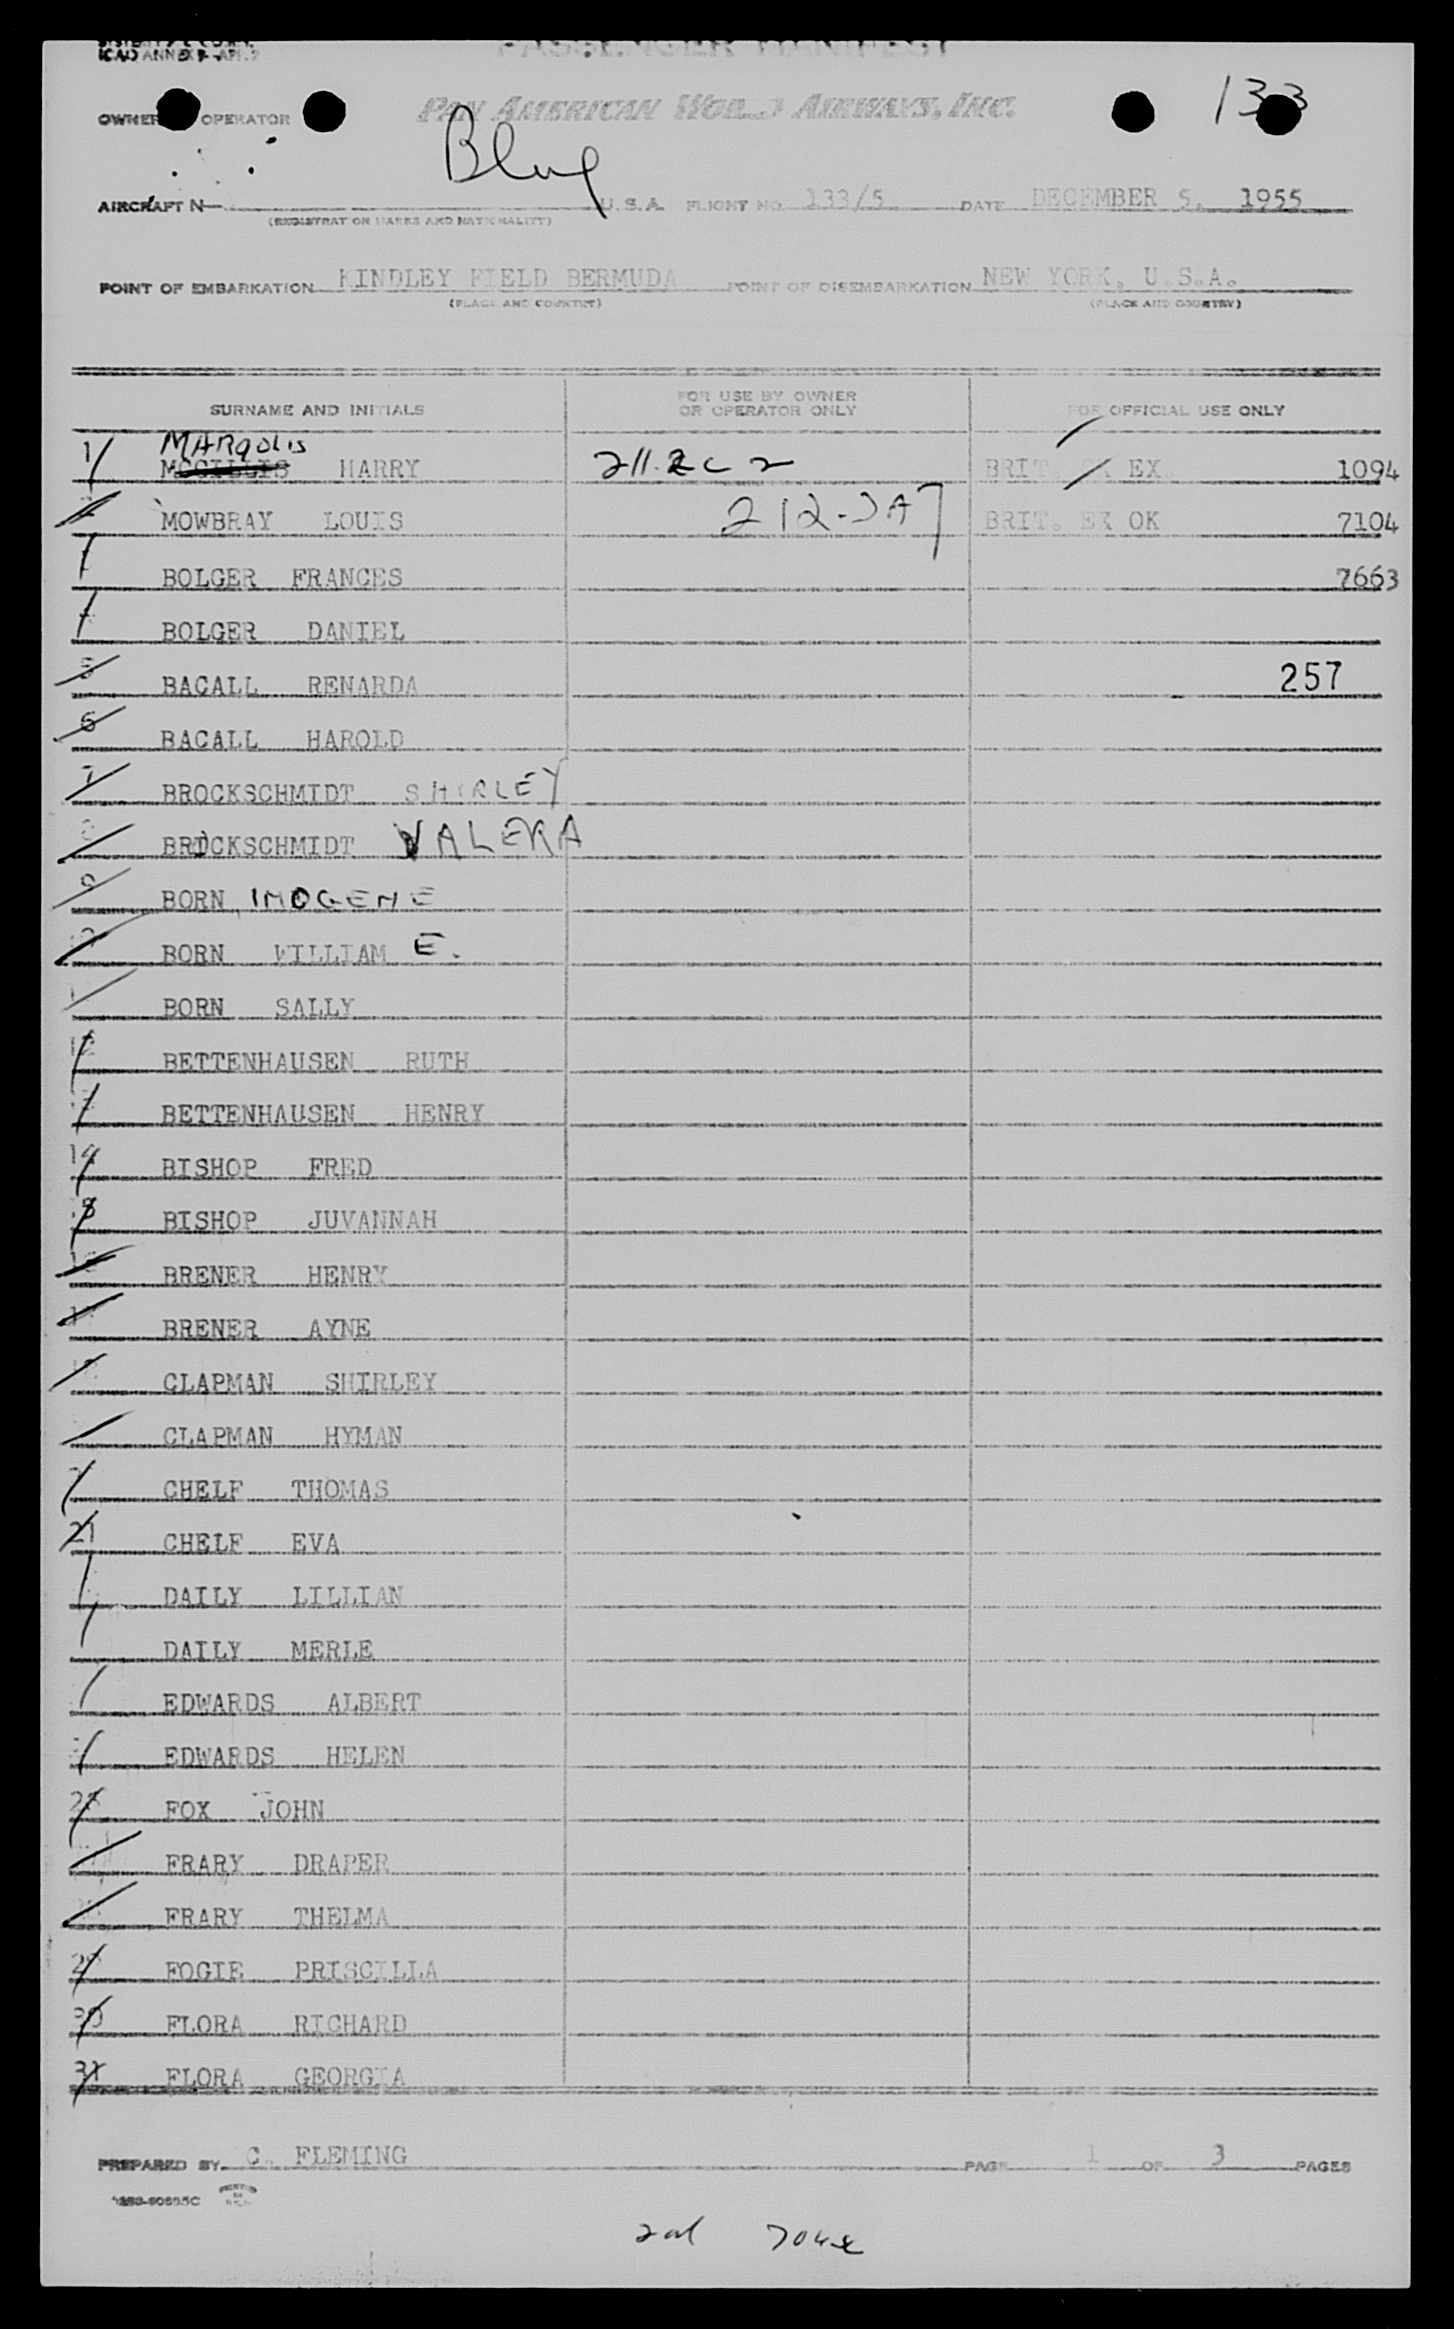 PASSENGER MANIFEST
ICAO ANNEX 9-APP. 2
133
OWNER OPERATOR PAN AMERICAN WORLD AIRWAYS, INC.
AIRCRAFT N U.S.A. FLIGHT NO. 133/5 DATE DECEMBER 5, 1955
(REGISTRATION MARKS AND NATIONALITY)
POINT OF EMBARKATION KINDLEY FIELD BERMUDA POINT OF DISEMBARKATION NEW YORK, U.S.A.
(PLACE AND COUNTRY) (PLACE AND COUNTRY)
SURNAME AND INITIALS FOR USE BY OWNER OR OPERATOR ONLY FOR OFFICIAL USE ONLY
MARGOLIS
1 MCGILLIS HARRY BRIT. EX 1094
MOWBRAY LOUIS BRIT. EX OK 7104
BOLGER FRANCES 7663
BOLGER DANIEL
5 BACALL RENARDA 257
6 BACALL HAROLD
7 BROCKSCHMIDT SHIRLEY
BROCKSCHMIDT VALERA
9 BORN IMOGENE
BORN WILLIAM E.
BORN SALLY
12 BETTENHAUSEN RUTH
BETTENHAUSEN HENRY
14 BISHOP FRED
BISHOP JUVANNAH
BRENER HENRY
BRENER AYNE
CLAPMAN SHIRLEY
CLAPMAN HYMAN
CHELF THOMAS
21 CHELF EVA
DAILY LILLIAN
DAILY MERLE
EDWARDS ALBERT
EDWARDS HELEN
FOX JOHN
FRARY DRAPER
FRARY THELMA
29 FOGIE PRISCILLA
30 FLORA RICHARD
31 FLORA GEORGIA
PREPARED BY C. FLEMING PAGE 1 OF 3 PAGES